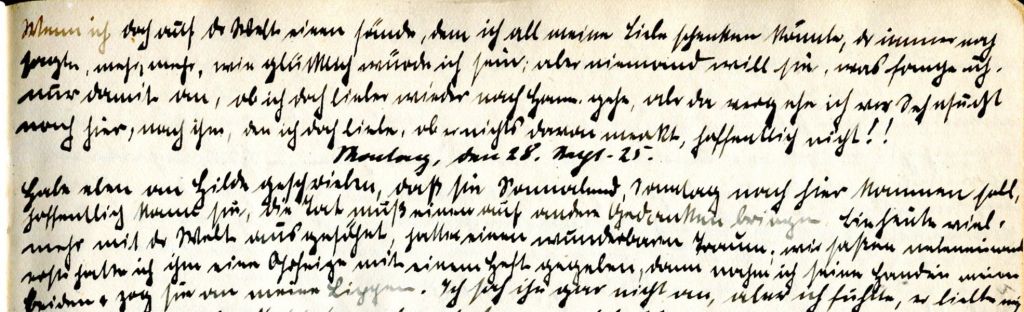 Wenn ich doch auf d. Welt einen fände, dem ich all meine Liebe schenken könnte, der immer noch
sagte, mehr, mehr, wie glücklich würde ich sein; aber niemand will sie, was fange ich
nur damit an, ob ich doch lieber wieder nach Hann. gehe, aber da vergehe ich vor Sehnsucht
nach hier, nach ihm, den ich doch liebe, ob er nichts davon merkt, hoffentlich nicht!!
Montag, den 28. Sept. 25.
Habe eben an Hilde geschrieben, daß sie Sonnabend, Sonntag nach hier kommen soll,
hoffentlich kann sie, die Tat muß einen auf andere Gedanken bringen. Bin heute viel-
mehr mit d. Welt ausgesöhnt, hatte einen wunderbaren Traum; wir saßen nebeneinand
erst hatte ich ihm eine Ohrfeige mit einem Heft gegeben, dann nahm ich seine Hände
beiden + zog sie an meine Lippen. Ich sah ihn gar nicht an, aber ich fühlte, er liebte